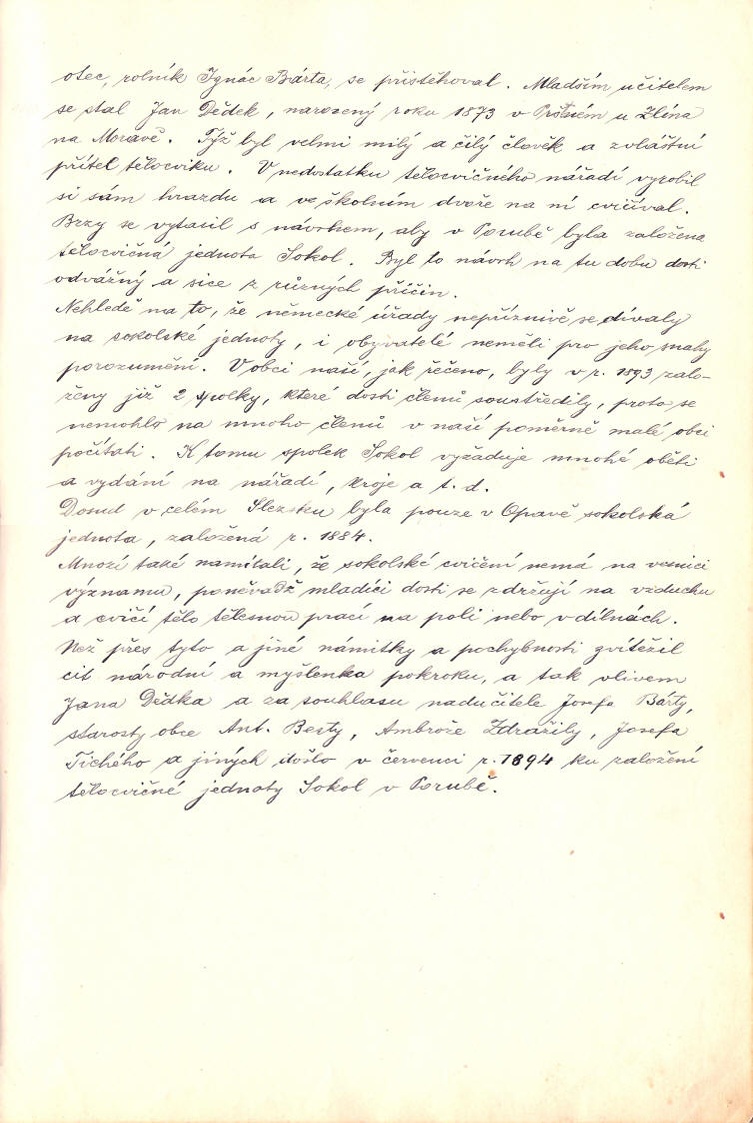 otec, rolník Ignác Bárta, se přistěhoval. Mladším učitelem
se stal Jan Dědek, narozený roku 1873 v u Zlína
na Moravě. Týž byl velmi milý a čilý člověk a zvláštní
přítel tělocviku. V nedostatku tělocvičného nářadí vyrobil
si sám hrazdu a ve školním dvoře na ní cvičíval.
Brzy se vytasil s návrhem, aby v Porubě byla založena
tělocvičná jednota Sokol. Byl to návrh na tu dobu dosti
odvážný a sice z různých příčin.
Nehledě na to, že německé úřady nepříznivě se dívaly
na sokolské jednoty, i obyvatelé neměli pro jeho snahy
porozumění. V obci naší, jak řečeno, byly v r. 1893 zalo-
ženy již 2 spolky, které dosti členů soustředily, proto se
nemohlo na mnoho členů v naší poměrně malé obci
počítati. K tomu spolek Sokol vyžaduje mnohé oběti
a vydání na nářadí, kroje a t. d.
Dosud v celém Slezsku byla pouze v Opavě sokolská
jednota, založená r. 1884.
Mnozí také namítali, že sokolské cvičení nemá na vesnici
významu, poněvadž mladíci dosti se zdržují na vzduchu
a cvičí tělo tělesnou prací na poli nebo v dílnách.
Než přes tyto a jiné námitky a pochybnosti zvítězil
cit národní a myšlenka pokroku, a tak vlivem
Jana Dědka a za souhlasu nadučitele Josefa Bárty,
starosty obce Ant. Besty, Ambrože Zdražily, Josefa
Tichého a jiných došlo v červenci r. 1894 ku založení
tělocvičné jednoty Sokol v Porubě.